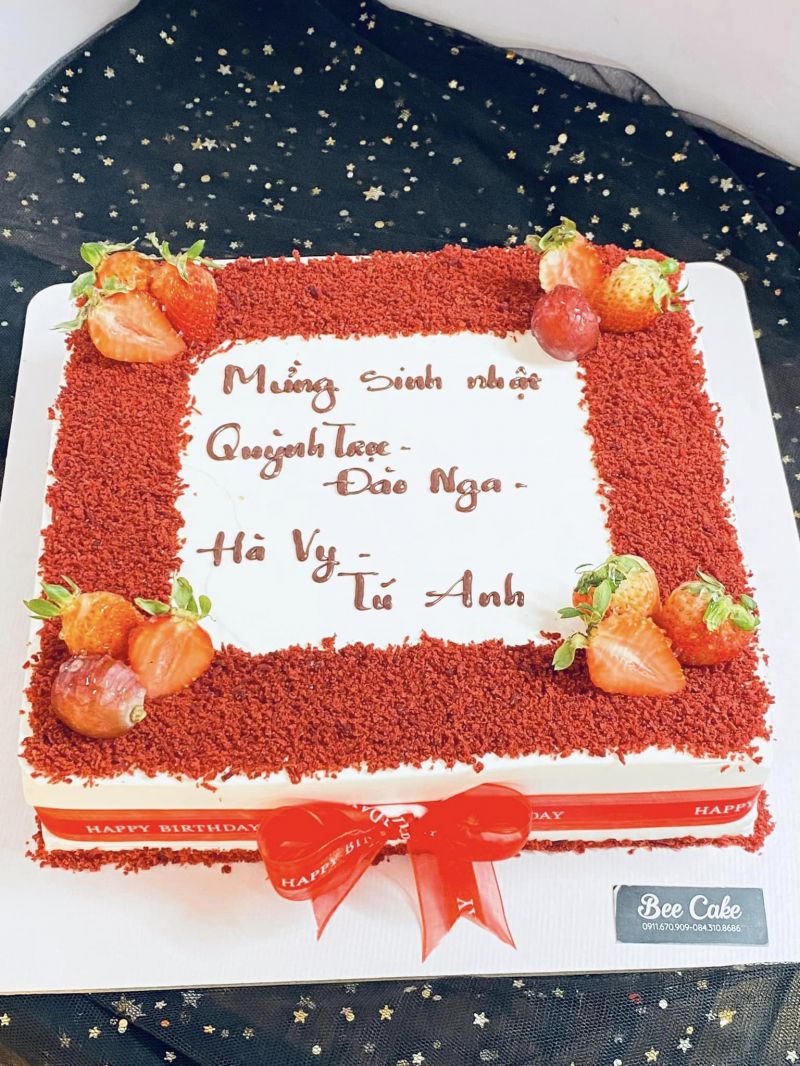 Mừng sinh nhật
Quỳnh Trọc -
Đào Nga -
Hà Vy -
Tú Anh
HAPPY BIRTHDAY
HAPPY BI
DAY
HAPPY
Bee Cake
0911.670.909-084.310.8686